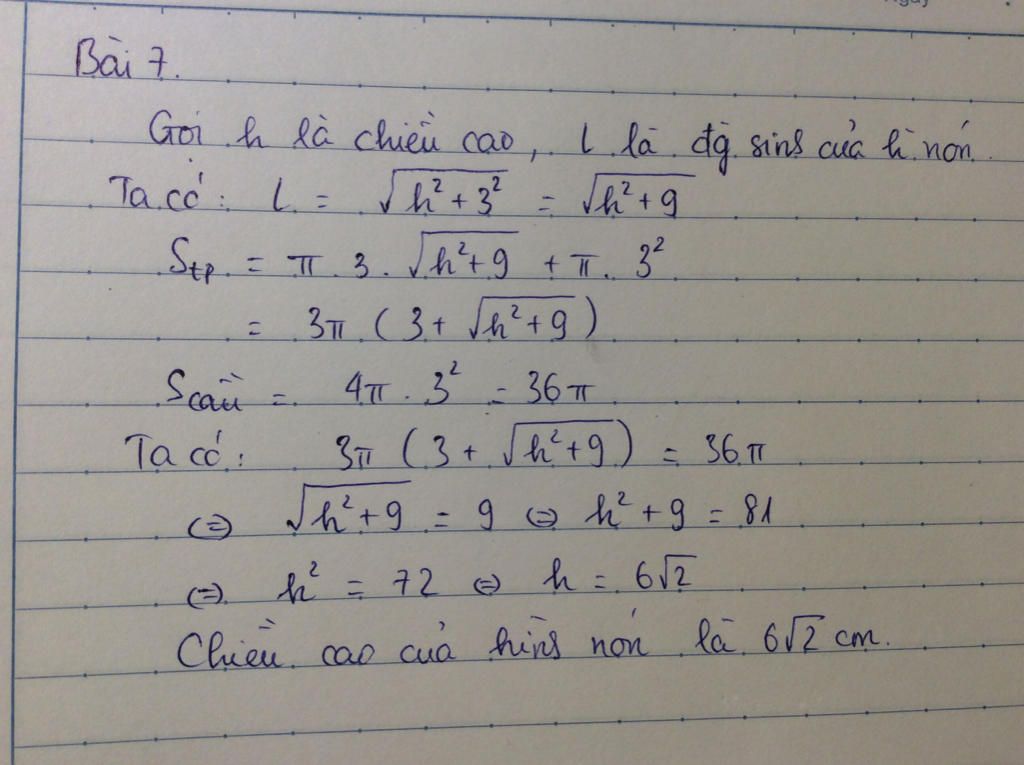 Ngày
Bài 7.
Gọi h là chiều cao, l là đg sinh của h nón.
Ta có: l = √(h²+3²) = √(h²+9)
Stp = π . 3 . √(h²+9) + π . 3²
= 3π (3 + √(h²+9))
Scầu = 4π . 3² = 36π
Ta có: 3π (3 + √(h²+9)) = 36π
⇔ √(h²+9) = 9 ⇔ h²+9 = 81
⇔ h² = 72 ⇔ h = 6√2
Chiều cao của hình nón là 6√2 cm.